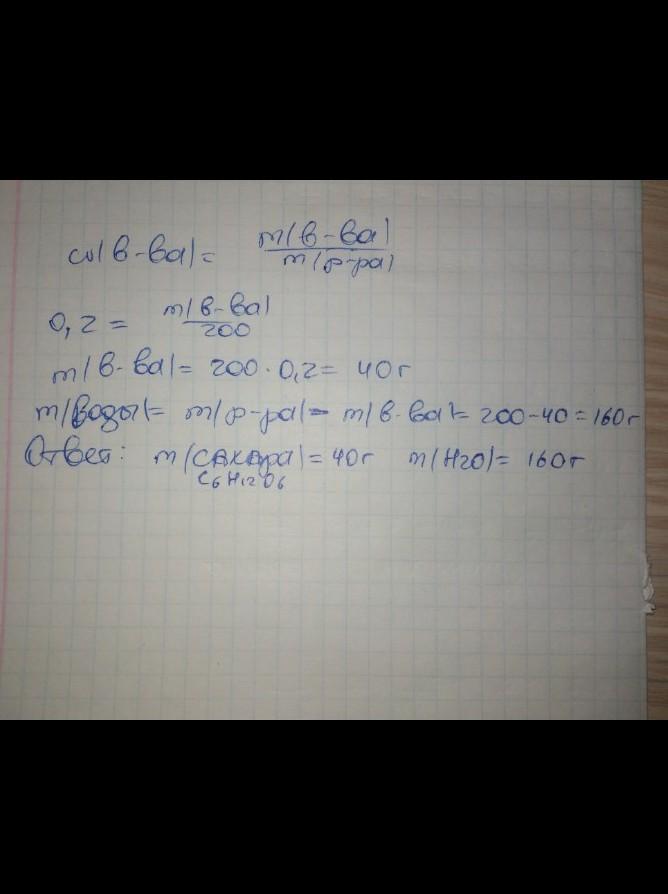 ω(в-ва) = m(в-ва) / m(р-ра)
0,2 = m(в-ва) / 200
m(в-ва) = 200 · 0,2 = 40 г
m(воды) = m(р-ра) - m(в-ва) = 200 - 40 = 160 г
Ответ: m(сахара) = 40 г m(H2O) = 160 г
C6H12O6